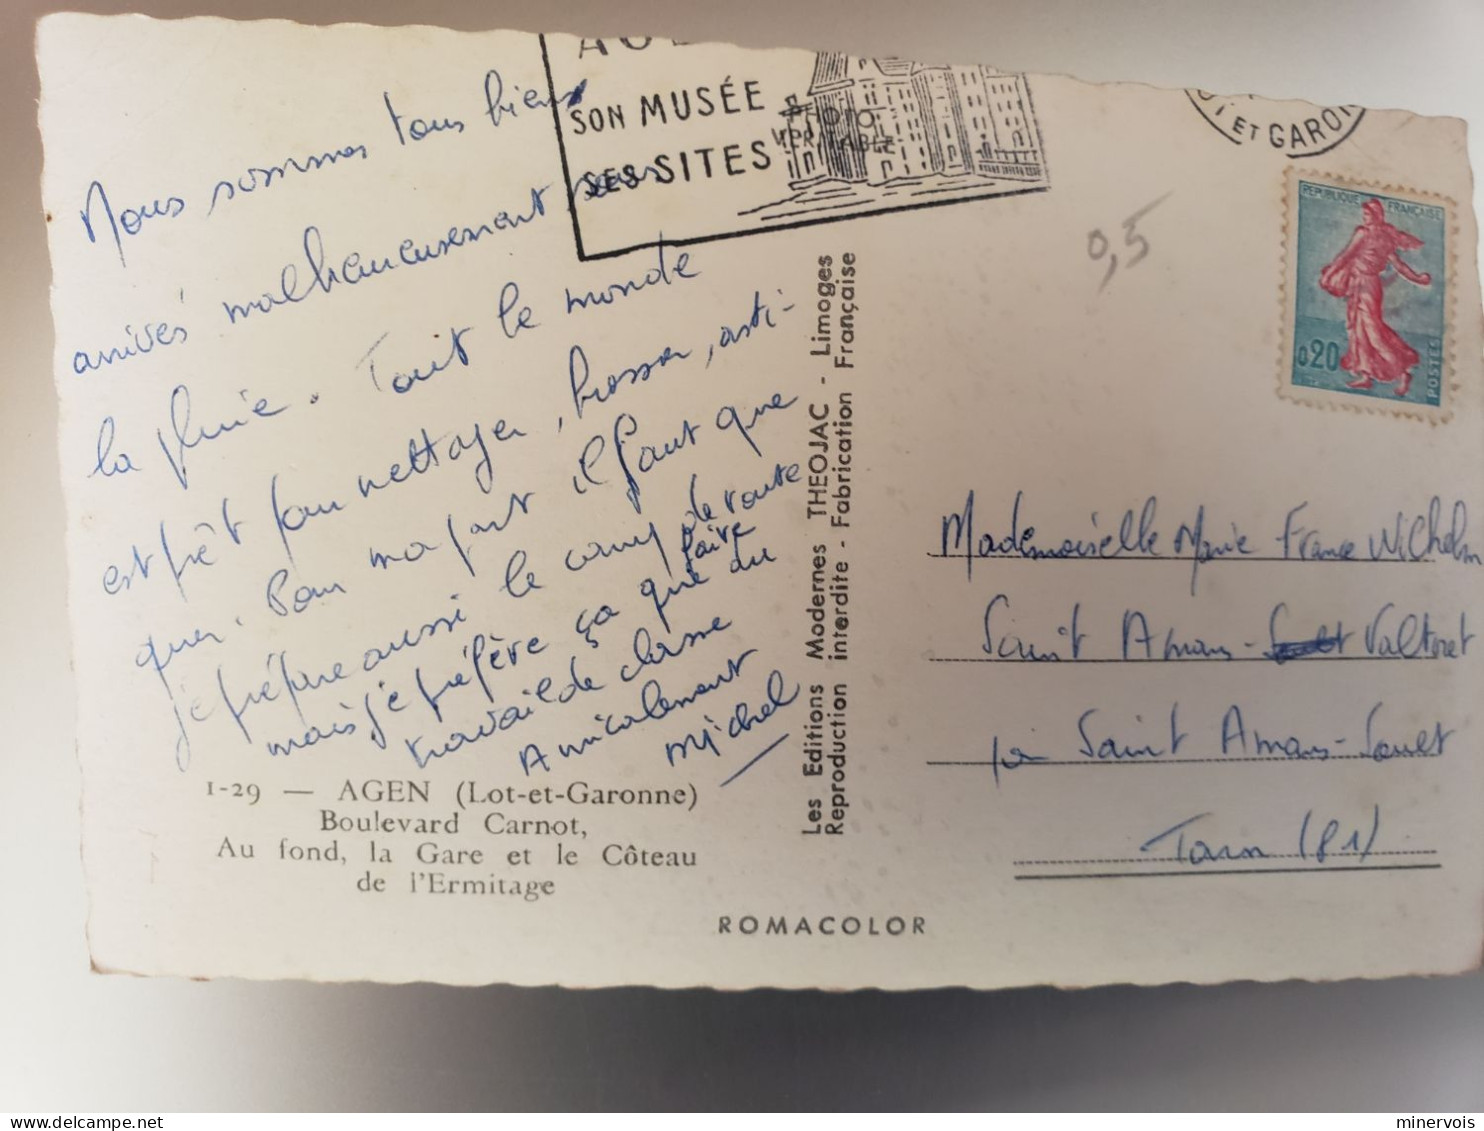 Nous sommes tous bien
arrivés malheureusement sous
la pluie. Tout le monde
est prêt pour nettoyer, brosser, asti-
quer. Pour ma part il faut que
je prépare aussi le coup de route
mais je préfère faire ça que du
travail de classe
Amicalement
Michel
SON MUSÉE
SES SITES
PHOTO
VÉRITABLE
ET GARON
0,5
REPUBLIQUE FRANÇAISE
0,20
POSTES
Les Editions Modernes THEOJAC - Limoges
Reproduction interdite - Fabrication Française
Mademoiselle Marie France Wilhelm
Saint Amans-Valtoret
par Saint Amans-Soult
Tarn (81)
1-29 — AGEN (Lot-et-Garonne)
Boulevard Carnot,
Au fond, la Gare et le Côteau
de l'Ermitage
ROMACOLOR
minervois